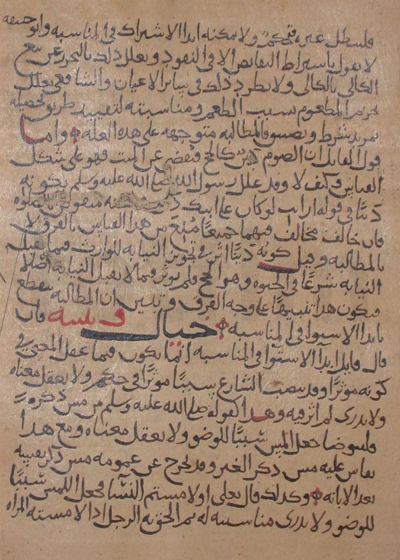 فليطل عبره فتحكم ولا يمكنه ابدا الاشتراك في المناسبه وابو حنيفه
لا يقول باشتراط التقابض الا في النقود ويعلل ذلك بالتحرز عن بيع
الكالي بالكالي ولا يطرد ذلك في سائر الاعيان والشافعي يعلل
تحريم المطعوم بسبب الطعم ومناسبته لتقييد طريق تحصيله
بمزيد شرط وتضييق المطالبه متوجهه على هذه العله واما
قول القايل ان الصوم دين كالحج فيقضى عن الميت فهو على شكل
القياس وكيف لا وقد علل رسول الله صلى الله عليه وسلم بكونه
دينا في قوله ارايت لو كان على ابيك دين
فان خالف مخالف فيهما جميعا من هذا القياس بالفرق لا
بالمطالبه وقيل كونه دينا اثر في تجويز النيابه للوارث فيما يقبل
النيابه شرعا في الحيوه وهو الحج ولم يوثر فيما لا يقبل النيابه اصلا
فيكون هذا تنبيها على وجه الفرق وتبين ان المطالبه تنقطع
بابدا الاستوا في المناسبه خيال وتنبيه فان
قال قايل ابدا الاستوا في المناسبه انما يكون فيما عقل المعنى في
كونه موثرا وقد ينصب الشارع سببا موثرا في حكم ولا يعقل معناه
ولا يدرى لم اثر فيه وهذا كقوله صلى الله عليه وسلم من مس ذكره
فليتوضا جعل المس سببا للوضو ولا يعقل معناه ومع هذا
يقاس عليه مس ذكر الغير وقد خرج عن عمومه مس ذكر نفسه
بعد الابانه وكذلك قال تعالى او لامستم النسا فجعل اللمس سببا
للوضو ولا يدرى مناسبته له ثم الحق به الرجل اذا لامسته المراه